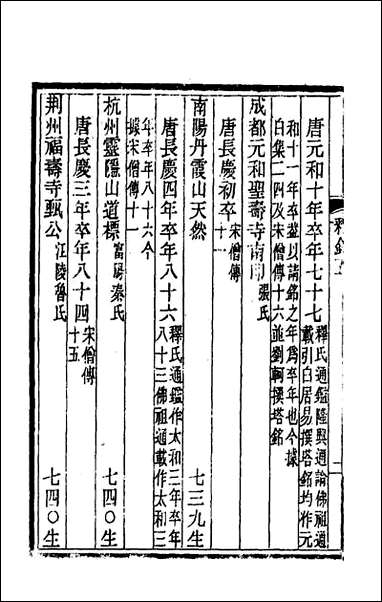 釋錄五
唐元和十年卒年七十七釋氏通鑑隆興通論佛祖通
載引白居易撰塔銘均作元
和十一年卒蓋以請銘之年爲卒年也今據
白集二四及宋僧傳十六並劉軻撰塔銘
成都元和聖壽寺南印張氏
唐長慶初卒宋僧傳
十一
南陽丹霞山天然 七三九生
唐長慶四年卒年八十六釋氏通鑑作太和三年卒年
八十三佛祖通載作太和三
年卒年八十六今
據宋僧傳十一
杭州靈隱山道標富陽秦氏 七四〇生
唐長慶三年卒年八十四宋僧傳
十五
荆州福壽寺甄公江陵魯氏 七四〇生